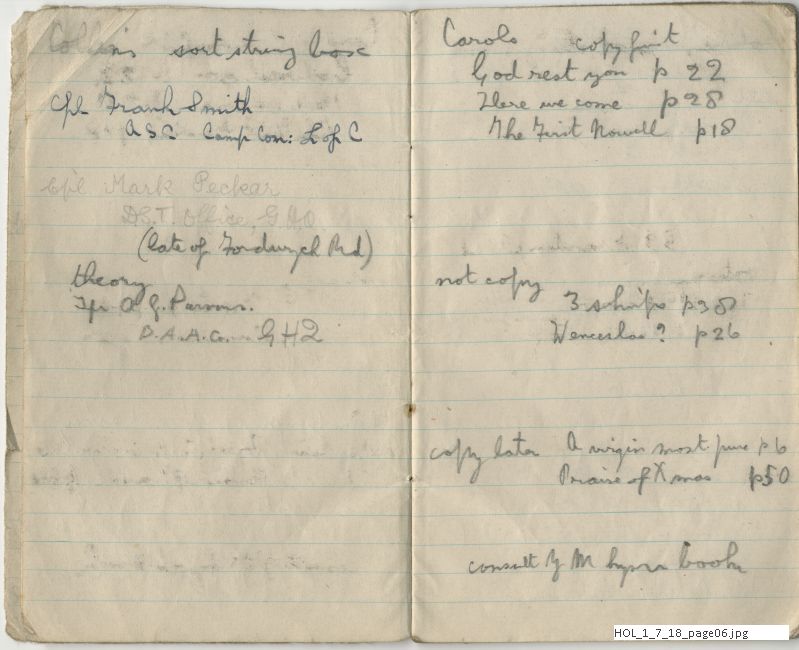 Collins sort string box
Cpl Frank Smith
ASC Camp Com: L of C
Cpl Mark Peckar
D.S.T. Office, GHQ
(late of Fordwych Rd)
theory
A. G. Parsons.
D.A.A.G. GHQ
Carols copy first
God rest you p 22
Here we come p 28
The First Nowell p 18
not copy
3 ships p 38
Wenceslas? p 26
copy later A virgin most pure p 6
Praise of Xmas p 50
consult Y M hymn book
HOL_1_7_18_page06.jpg